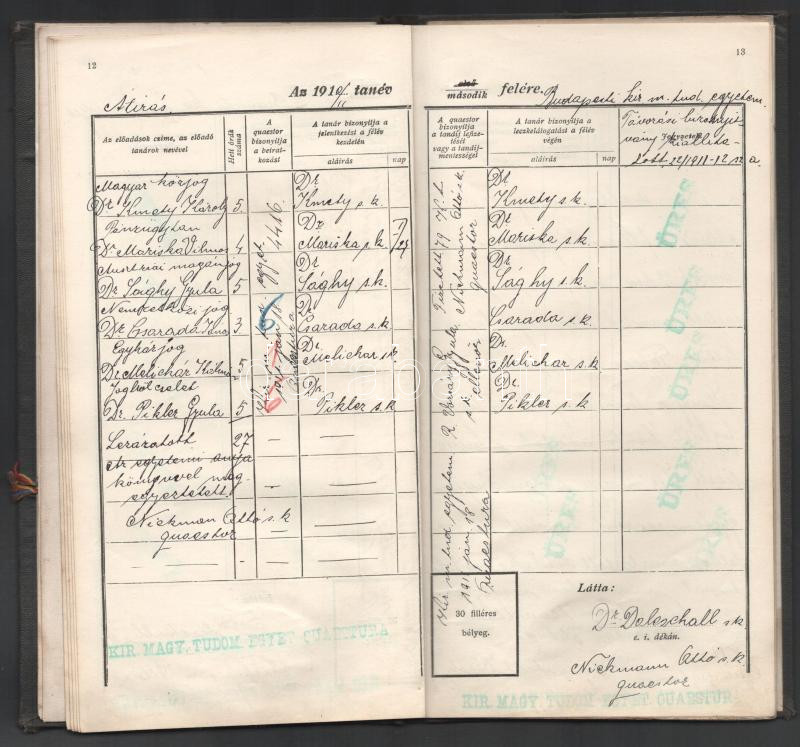 12
Átírás
Az 1910/11 tanév
Az előadások czíme, az előadó tanárok nevével
Heti órák száma
A quaestor bizonyítja a beiratkozást
A tanár bizonyítja a jelentkezést a félév kezdetén
aláírás
nap
Magyar közjog
Dr Kmety Károly 5
Dr Kmety s. k.
Pénzügytan
Dr Mariska Vilmos 4
Dr Mariska s.k.
Austriai magánjog
Dr Sághy Gyula 5
Dr Sághy s.k.
Nemzetközi jog
Dr Csarada János 3
Dr Csarada s.k.
Egyházjog
Dr Melichár Kálmán 5
Dr. Melichar s.k.
Jogbölcselet
Dr. Pikler Gyula 5
Dr. Pikler s.k.
Lezáratott 27
Az egyetemi anyakönyvvel meg
egyeztetett.
Nickmann Ottó s.k
quaestor
KIR. MAGY. TUDOM. EGYET. QUAESTURA
13
első
második
félére.
Budapesti kir. m. tud. egyetem
A quaestor bizonyítja a tandíj lefizetését vagy a tandíjmentességet
A tanár bizonyítja a leczkelátogatást a félév végén
aláírás
nap
Jegyzetek
Távozási bizonyít-
vány kiállítta-
tott 22/1911-12 sz a.
Nickmann Ottó s.k.
quaestor
Dr Kmety s.k.
Dr Mariska s.k.
Dr Sághy s.k.
Dr Csarada s.k.
Dr. Melichar s.k.
Dr. Pikler s.k.
ellenőr
Kir. m. tud. egyetem
1911 jan. 18
Quaestura
ÜRES
ÜRES
ÜRES
ÜRES
ÜRES
30 filléres
bélyeg.
Látta:
Dr Doleschall s.k.
e. i. dékán.
Nickmann Ottó s.k.
quaestor
KIR. MAGY. TUDOM. EGYET. QUAESTUR